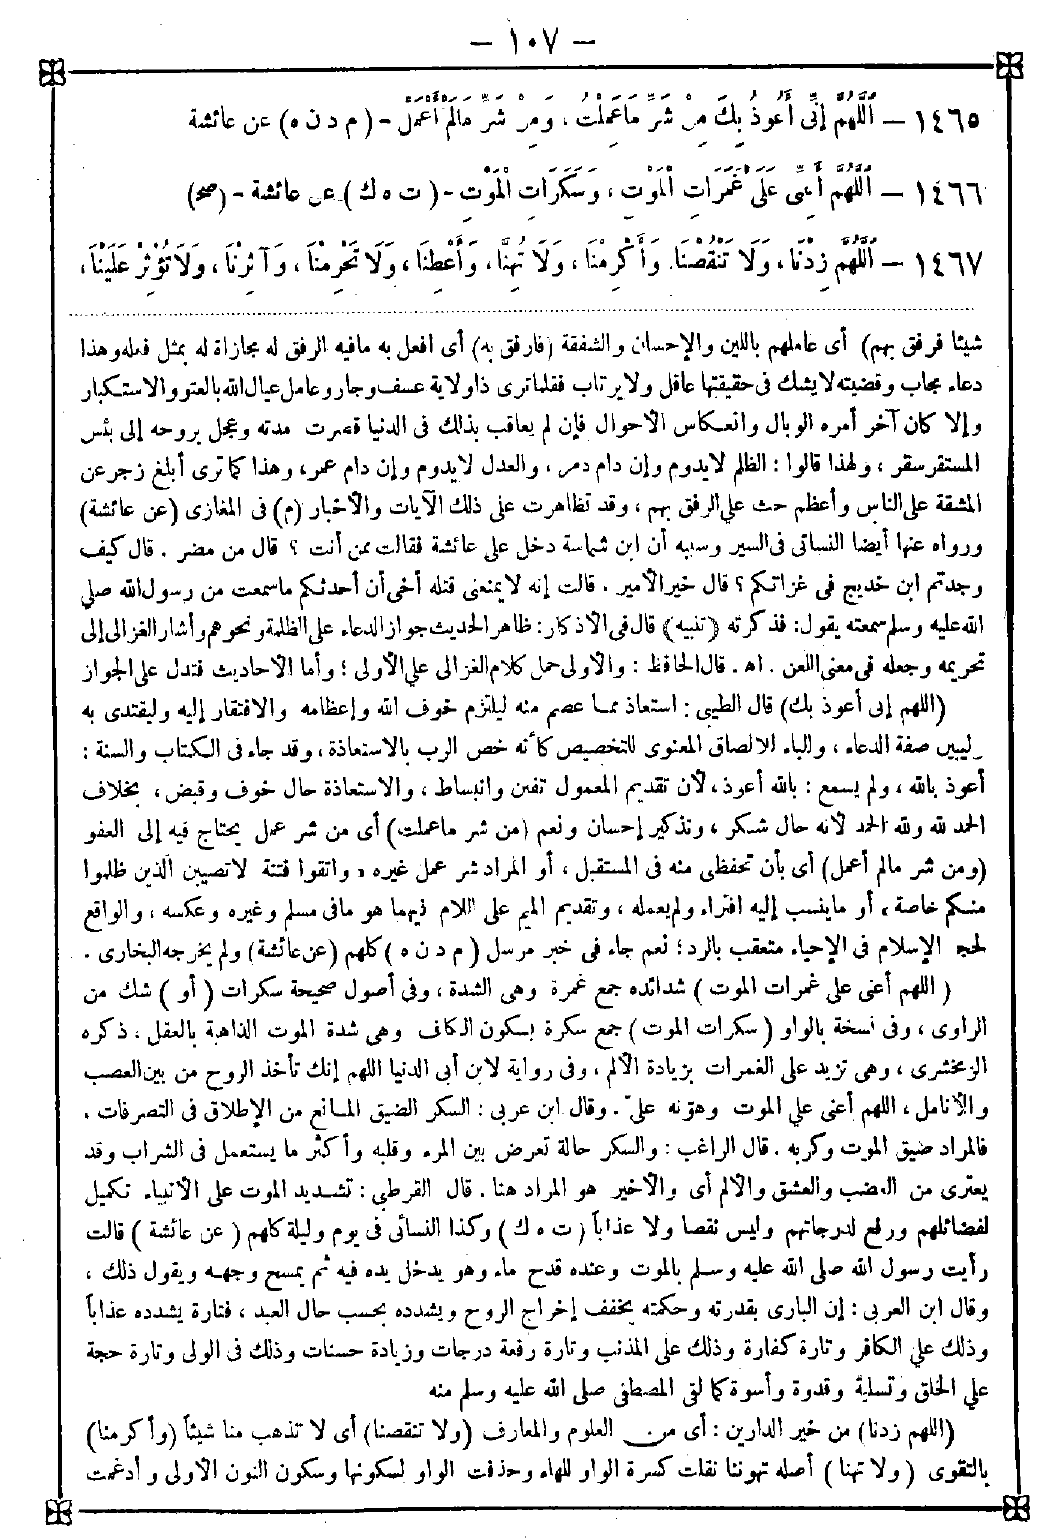 — ١٠٧ —
١٤٦٥ — اَللّٰهُمَّ إِنِّى أَعُوذُ بِكَ مِنْ شَرِّ مَا عَمِلْتُ ، وَمِنْ شَرِّ مَا لَمْ أَعْمَلْ - (م د ن ه) عن عائشة
١٤٦٦ — اَللّٰهُمَّ أَعِنِّى عَلَى غَمَرَاتِ الْمَوْتِ ، وَسَكَرَاتِ الْمَوْتِ - (ت ه ك) عن عائشة - (صح)
١٤٦٧ — اَللّٰهُمَّ زِدْنَا ، وَلَا تَنْقُصْنَا. وَأَكْرِمْنَا ، وَلَا تُهِنَّا ، وَأَعْطِنَا ، وَلَا تَحْرِمْنَا ، وَآثِرْنَا ، وَلَا تُؤْثِرْ عَلَيْنَا ،
شيئا فرفق بهم) أى عاملهم باللين والإحسان والشفقة (فارفق به) أى افعل به مافيه الرفق له مجازاة له بمثل فعله وهذا
دعاء مجاب وقضيته لايشك فى حقيقتها عاقل ولايرتاب فقلما ترى ذا ولاية عسف وجار وعامل عيال الله بالعتو والاستكبار
وإلا كان آخر أمره الوبال وانعكاس الأحوال فإن لم يعاقب بذلك فى الدنيا قصرت مدته وعجل بروحه إلى بئس
المستقر سقر ، ولهذا قالوا : الظلم لايدوم وإن دام دمر ، والعدل لايدوم وإن دام عمر، وهذا كما ترى أبلغ زجر عن
المشقة على الناس وأعظم حث على الرفق بهم ، وقد تظاهرت على ذلك الآيات والأخبار (م) فى المغازى (عن عائشة)
ورواه عنها أيضا النسائى فى السير وسببه أن ابن شماسة دخل على عائشة فقالت ممن أنت ؟ قال من مضر . قال كيف
وجدتم ابن خديج فى غزاتكم ؟ قال خير الأمير . قالت إنه لا يمنعنى قتله أخى أن أحدثكم ماسمعت من رسول الله صلى
الله عليه وسلم سمعته يقول: فذكرته (تنبيه) قال فى الأذكار: ظاهر الحديث جواز الدعاء على الظلمة ونحوهم وأشار الغزالى إلى
تحريمه وجعله فى معنى اللعن . اهـ. قال الحافظ : والأولى حمل كلام الغزالى على الأولى ؛ وأما الأحاديث فتدل على الجواز
(اللهم إنى أعوذ بك) قال الطيبى : استعاذ مما عصم منه ليلتزم خوف الله وإعظامه والافتقار إليه وليقتدى به
وليبين صفة الدعاء ، والباء الإلصاق المعنوى للتخصيص كأنه خص الرب بالاستعاذة ، وقد جاء فى الكتاب والسنة :
أعوذ بالله ، ولم يسمع : بالله أعوذ ، لأن تقديم المعمول تفنن وانبساط ، والاستعاذة حال خوف وقبض ، بخلاف
الحمد لله ولله الحمد لأنه حال شكر ، وتذكير إحسان ونعم (من شر ماعملت) أى من شر عمل يحتاج فيه إلى العفو
(ومن شر مالم أعمل) أى بأن تحفظنى منه فى المستقبل ، أو المراد شر عمل غيره ، واتقوا فتنة لاتصيبن الذين ظلموا
منكم خاصة ، أو ماينسب إليه افتراء ولم يعمله ، وتقديم الميم على اللام فيهما هو مافى مسلم وغيره وعكسه ، والواقع
لحجة الإسلام فى الإحياء متعقب بالرد ؛ نعم جاء فى خبر مرسل (م د ن ه) كلهم (عن عائشة) ولم يخرجه البخارى .
(اللهم أعنى على غمرات الموت) شدائده جمع غمرة وهى الشدة ، وفى أصول صحيحة سكرات (أو) شك من
الراوى ، وفى نسخة بالواو (سكرات الموت) جمع سكرة بسكون الكاف وهى شدة الموت الذاهبة بالعقل ، ذكره
الزمخشرى ، وهى تزيد على الغمرات بزيادة الألم ، وفى رواية لابن أبى الدنيا اللهم إنك تأخذ الروح من بين العصب
والأنامل ، اللهم أعنى على الموت وهونه علىّ . وقال ابن عربى : السكر الضيق المانع من الإطلاق فى التصرفات .
فالمراد ضيق الموت وكربه . قال الراغب : والسكر حالة تعرض بين المرء وقلبه وأكثر ما يستعمل فى الشراب وقد
يعترى من الغضب والعشق والألم أى والأخير هو المراد هنا . قال القرطبى : تشديد الموت على الأنبياء تكميل
لفضائلهم ورفع لدرجاتهم وليس نقصا ولا عذاباً (ت ه ك) وكذا النسائى فى يوم وليلة كلهم (عن عائشة) قالت
رأيت رسول الله صلى الله عليه وسلم بالموت وعنده قدح ماء وهو يدخل يده فيه ثم يمسح وجهه ويقول ذلك ،
وقال ابن العربى : إن البارى بقدرته وحكمته يخفف إخراج الروح ويشدده بحسب حال العبد ، فتارة يشدده عذاباً
وذلك على الكافر وتارة كفارة وذلك على المذنب وتارة رفعة درجات وزيادة حسنات وذلك فى الولى وتارة حجة
على الخلق وتسلية وقدوة وأسوة كما لقى المصطفى صلى الله عليه وسلم منه
(اللهم زدنا) من خير الدارين : أى من العلوم والمعارف (ولا تنقصنا) أى لا تذهب منا شيئاً (وأكرمنا)
بالتقوى (ولا تهنا) أصله تهوننا نقلت كسرة الواو للهاء وحذفت الواو لسكونها وسكون النون الأولى وأدغمت